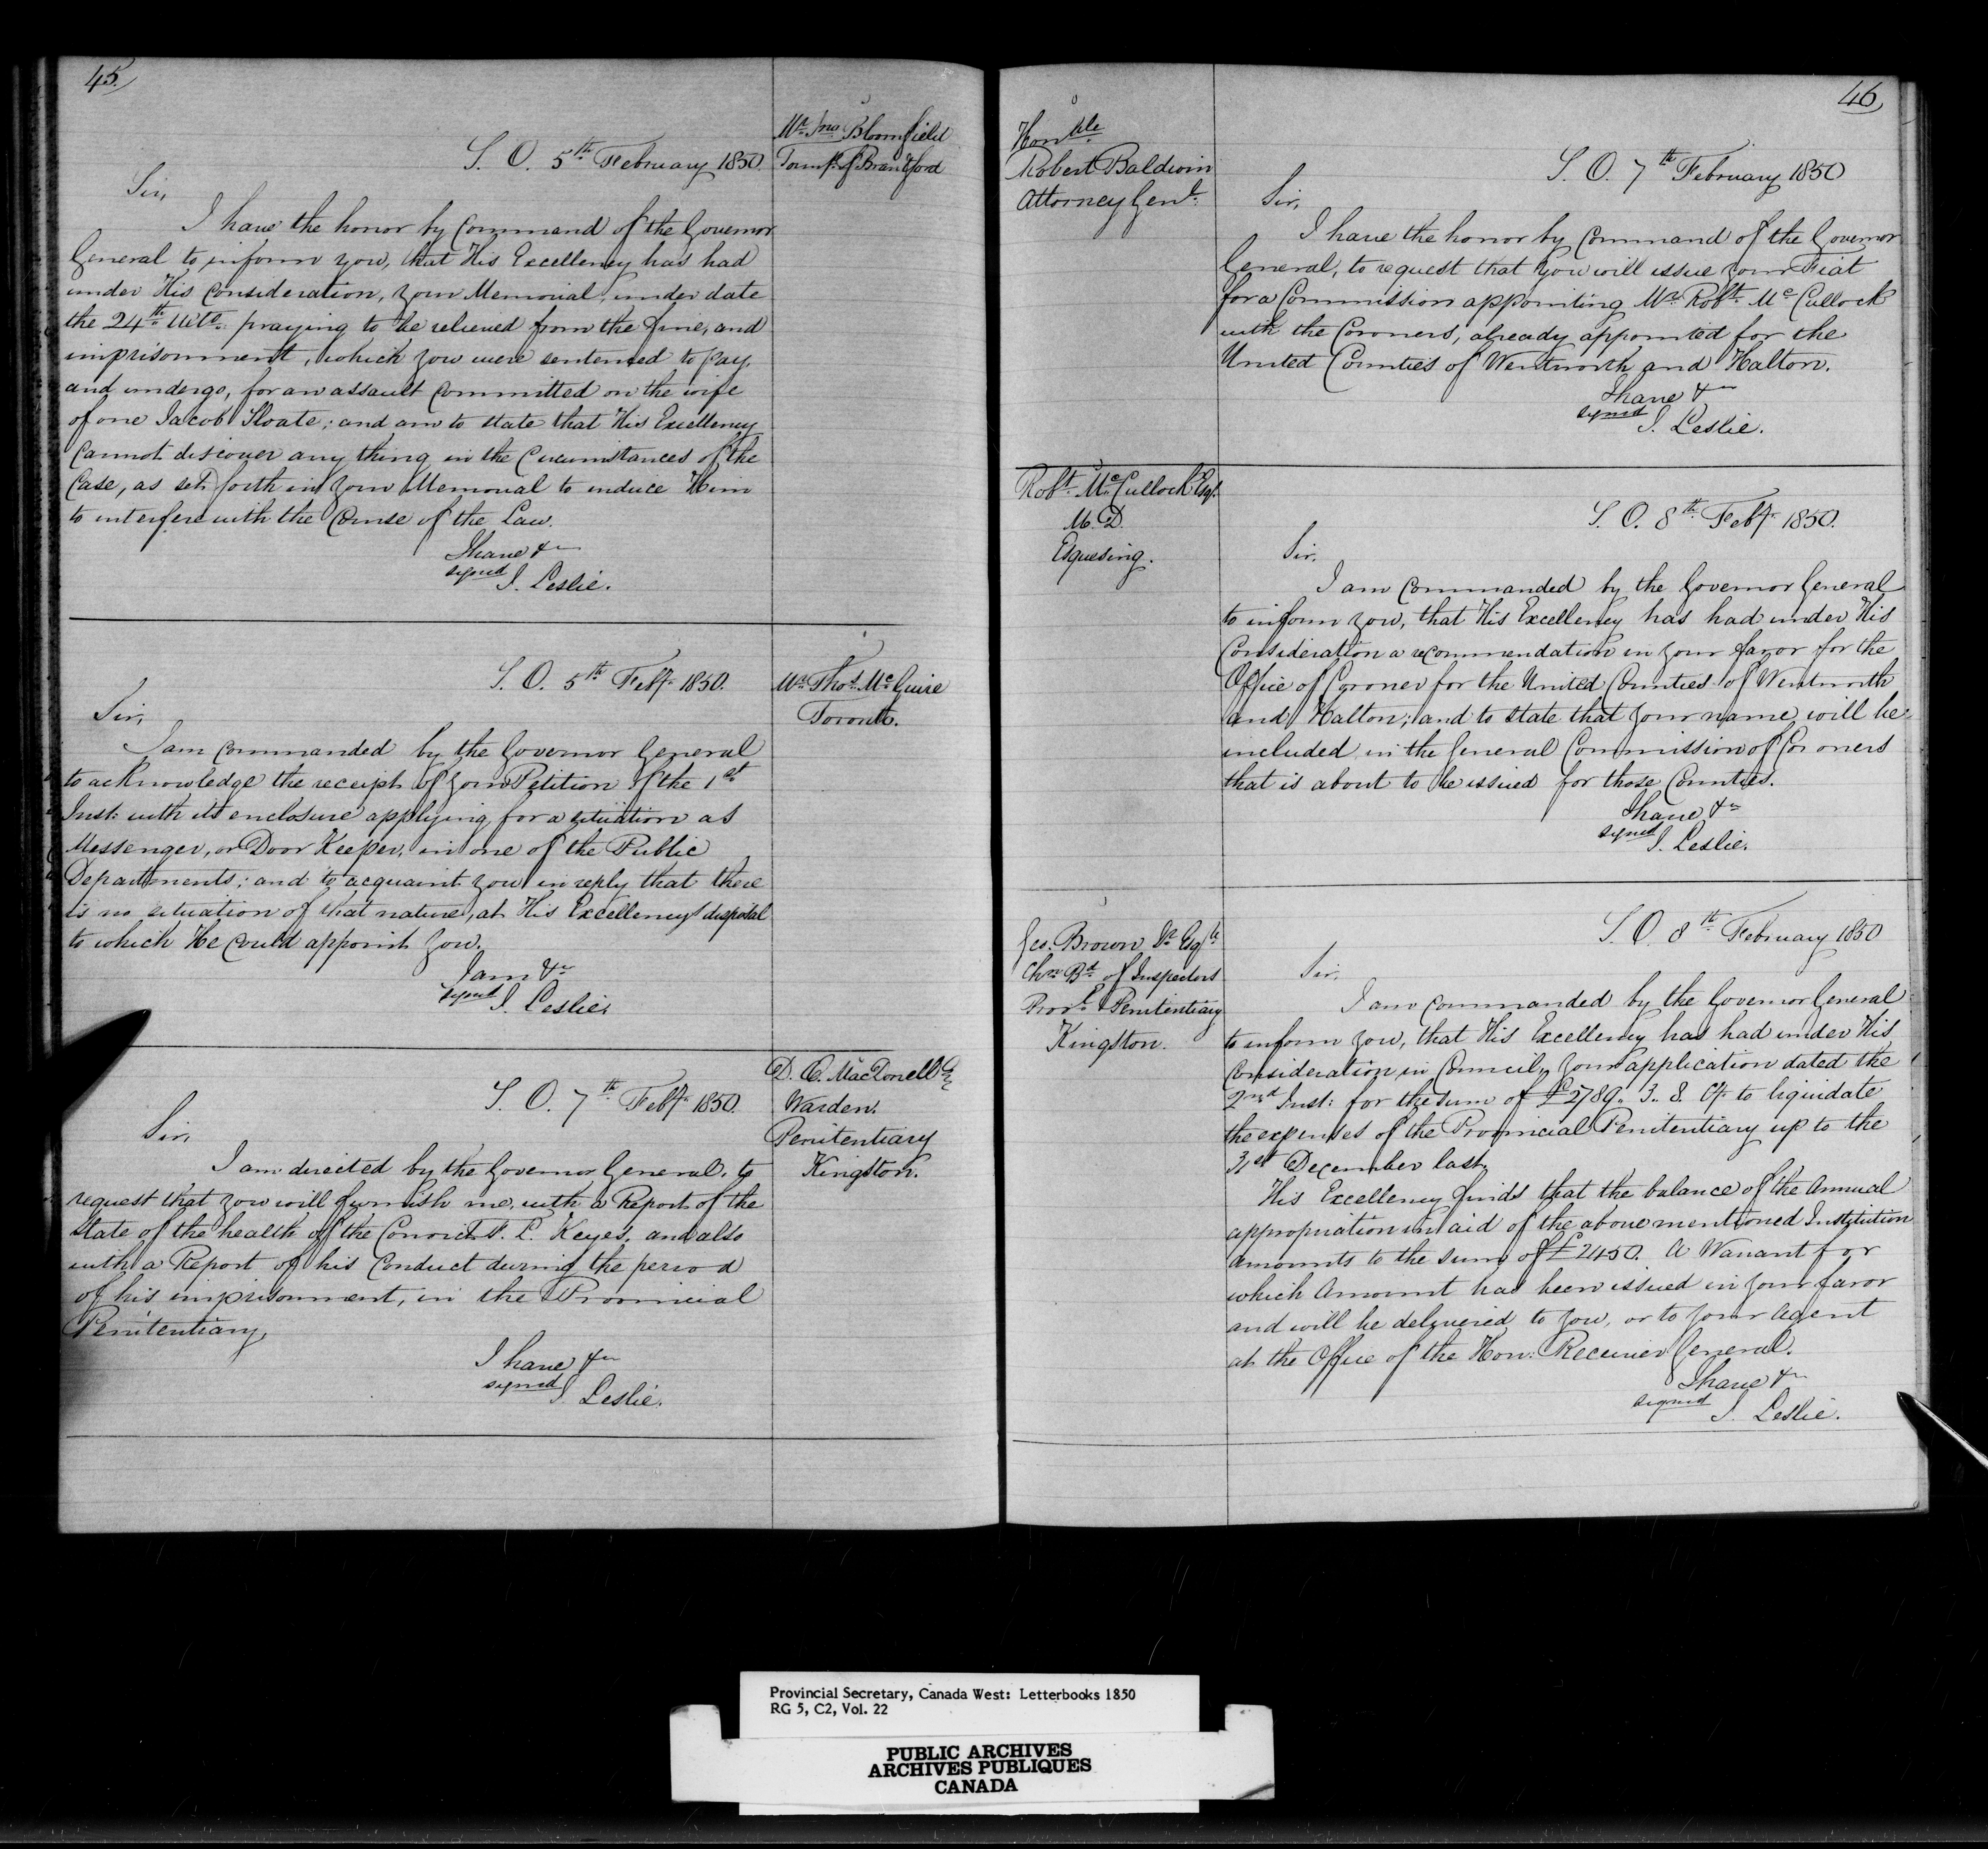 45.
Mr. Jno Bloomfield
Townp. of Brantford
S. O. 5th February 1850.
Sir,
I have the honor by Command of the Governor
General to inform you, that His Excellency has had
under His Consideration, your Memorial, under date
the 24th Ulto. praying to be relieved from the fine, and
imprisonment, which you were sentenced to pay,
and undergo, for an assault Committed on the wife
of one Jacob Sloate; and am to state that His Excellency
Cannot discover any thing in the Circumstances of the
Case, as set forth in your Memorial to induce Him
to interfere with the Course of the Law.
I have &c
signed J. Leslie.
Mr. Thos. McGuire
Toronto.
S. O. 5th Feby. 1850.
Sir,
I am Commanded by the Governor General
to acknowledge the receipt of your Petition of the 1st
Inst: with its enclosure applying for a situation as
Messenger, or Door Keeper, in one of the Public
Departments; and to acquaint you in reply that there
is no situation of that nature, at His Excellency's disposal
to which He Could appoint you.
I am &c
signed J. Leslie.
D. Æ. MacDonell Esq
Warden.
Penitentiary
Kingston.
S. O. 7th Feby. 1850.
Sir,
I am directed by the Governor General, to
request that you will furnish me, with a Report of the
State of the health of the Convict P. L. Keyes, and also
with a Report of his Conduct during the period
of his imprisonment, in the Provincial
Penitentiary,
I have &c
signed J. Leslie.
46
Honble.
Robert Baldwin
Attorney Genl.
S. O. 7th February 1850
Sir,
I have the honor by Command of the Governor
General, to request that you will issue your Fiat
for a Commission appointing Mr. Robt. McCullock
with the Coroners, already appointed for the
United Counties of Wentworth and Halton.
I have &c
signed J. Leslie.
Robt. McCullock Esqr.
M. D.
Esquesing.
S. O. 8th Feby. 1850.
Sir,
I am Commanded by the Governor General
to inform you, that His Excellency has had under His
Consideration a recommendation in your favor for the
Office of Coroner for the United Counties of Wentworth
and Halton; and to state that your name will be
included in the General Commission of Coroners
that is about to be issued for those Counties.
I have &c
signed J. Leslie.
Geo. Brown Esqr.
Chn. Bd. of Inspectors
Provl. Penitentiary
Kingston.
S. O. 8th February 1850
Sir,
I am Commanded by the Governor General
to inform you, that His Excellency has had under His
Consideration in Council, your application dated the
2nd Inst: for the sum of £2789.. 3.. 8. Cy. to liquidate
the expenses of the Provincial Penitentiary up to the
31st December last.
His Excellency finds that the balance of the Annual
appropriation in aid of the above mentioned Institution
amounts to the sum of £2450. A Warrant for
which Amount has been issued in your favor
and will be delivered to you, or to your Agent
at the Office of the Hon: Receiver General.
I have &c
signed J. Leslie.
Provincial Secretary, Canada West: Letterbooks 1850
RG 5, C2, Vol. 22
PUBLIC ARCHIVES
ARCHIVES PUBLIQUES
CANADA